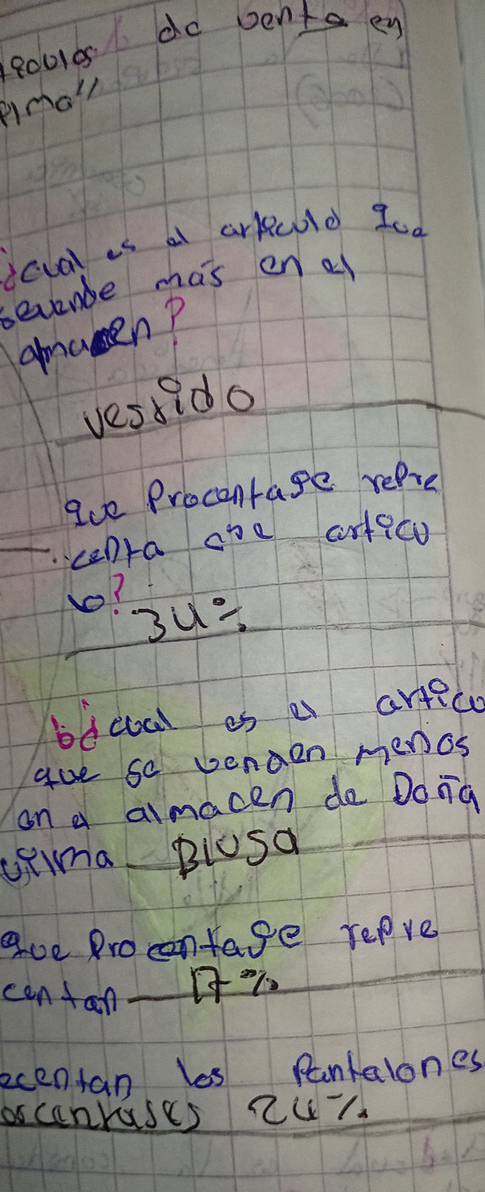 de venta en
ilma"
¿cual es el articulo que
sevende más en el
almacen?
vestido
que Procentage repre
centa ese articu
lo?
34%
b¿cual es el articu
que se venden menos
en el almacen de Doña
vilma Blusa
que Procentage repre
centan 17%
ecentan los Pantalones
24%